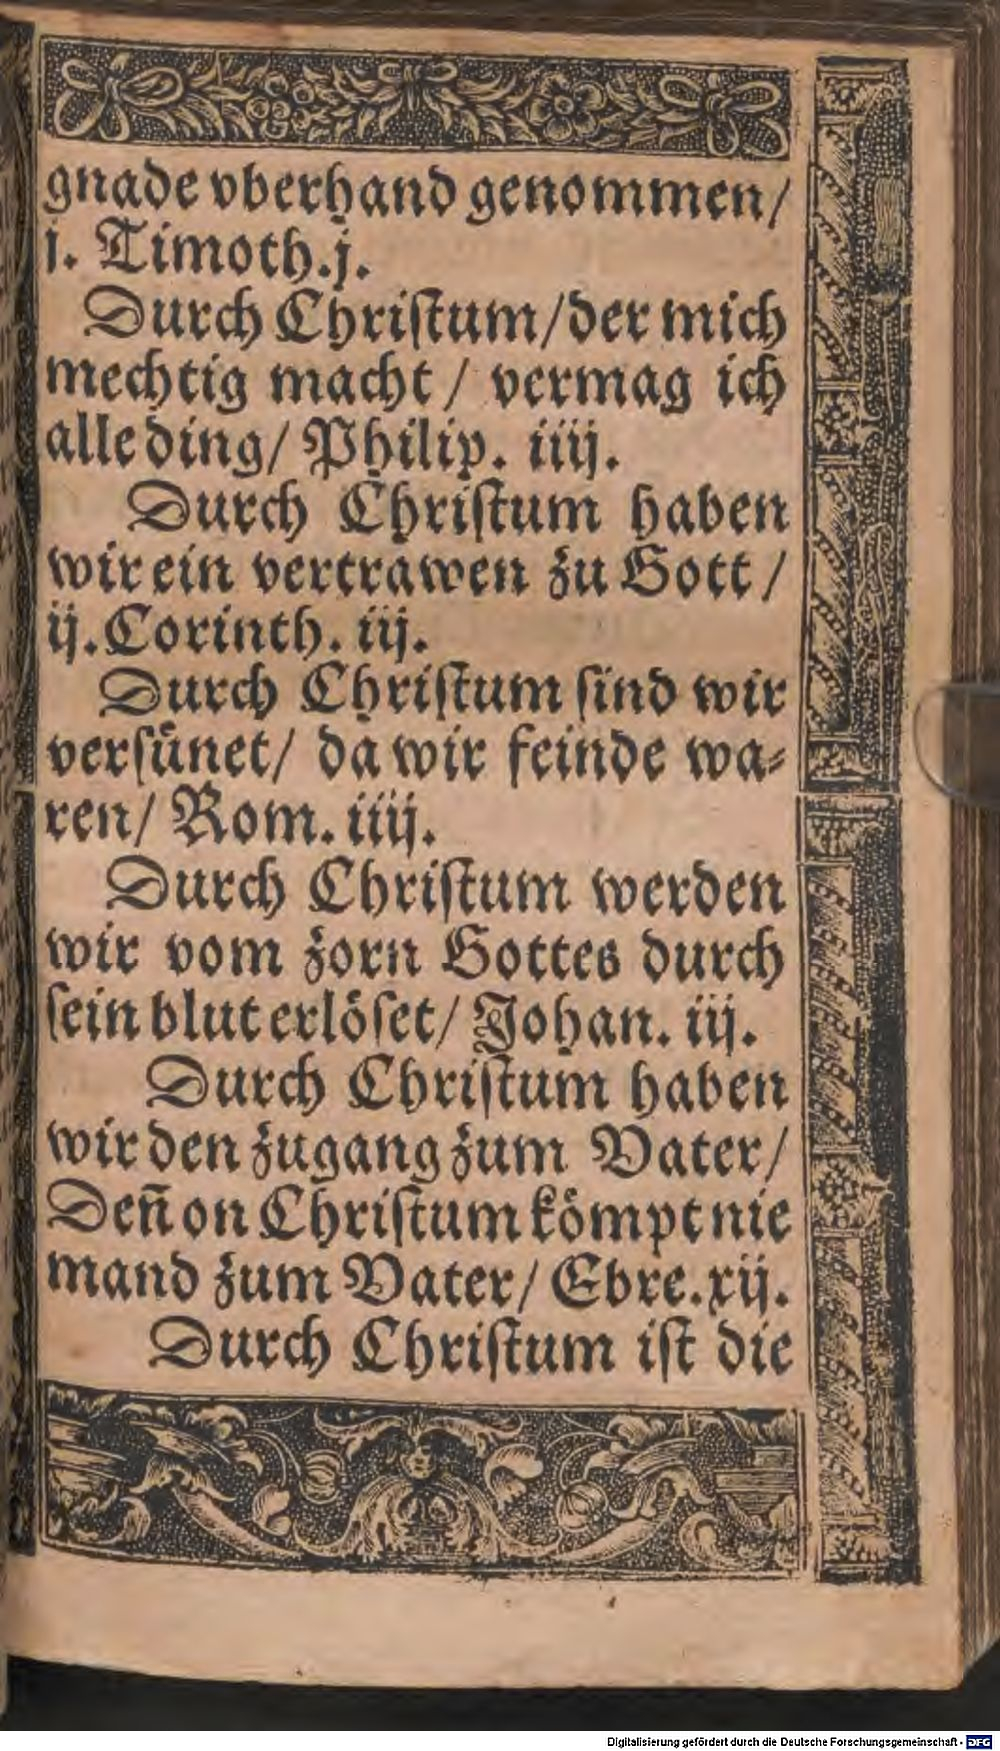 gnade vberhand genommen/
i. Timoth.j.
Durch Christum/der mich
mechtig macht/ vermag ich
alle ding/ Philip. iiij.
Durch Christum haben
wir ein vertrawen zu Gott/
ij.Corinth. iij.
Durch Christum sind wir
versünet/ da wir feinde wa⸗
ren/ Rom. iiij.
Durch Christum werden
wir vom zorn Gottes durch
sein blut erlöset/ Johan. iij.
Durch Christum haben
wir den zugang zum Vater/
Deñ on Christum kömpt nie
mand zum Vater/ Ebre.xij.
Durch Christum ist die
Digitalisierung gefördert durch die Deutsche Forschungsgemeinschaft - DFG